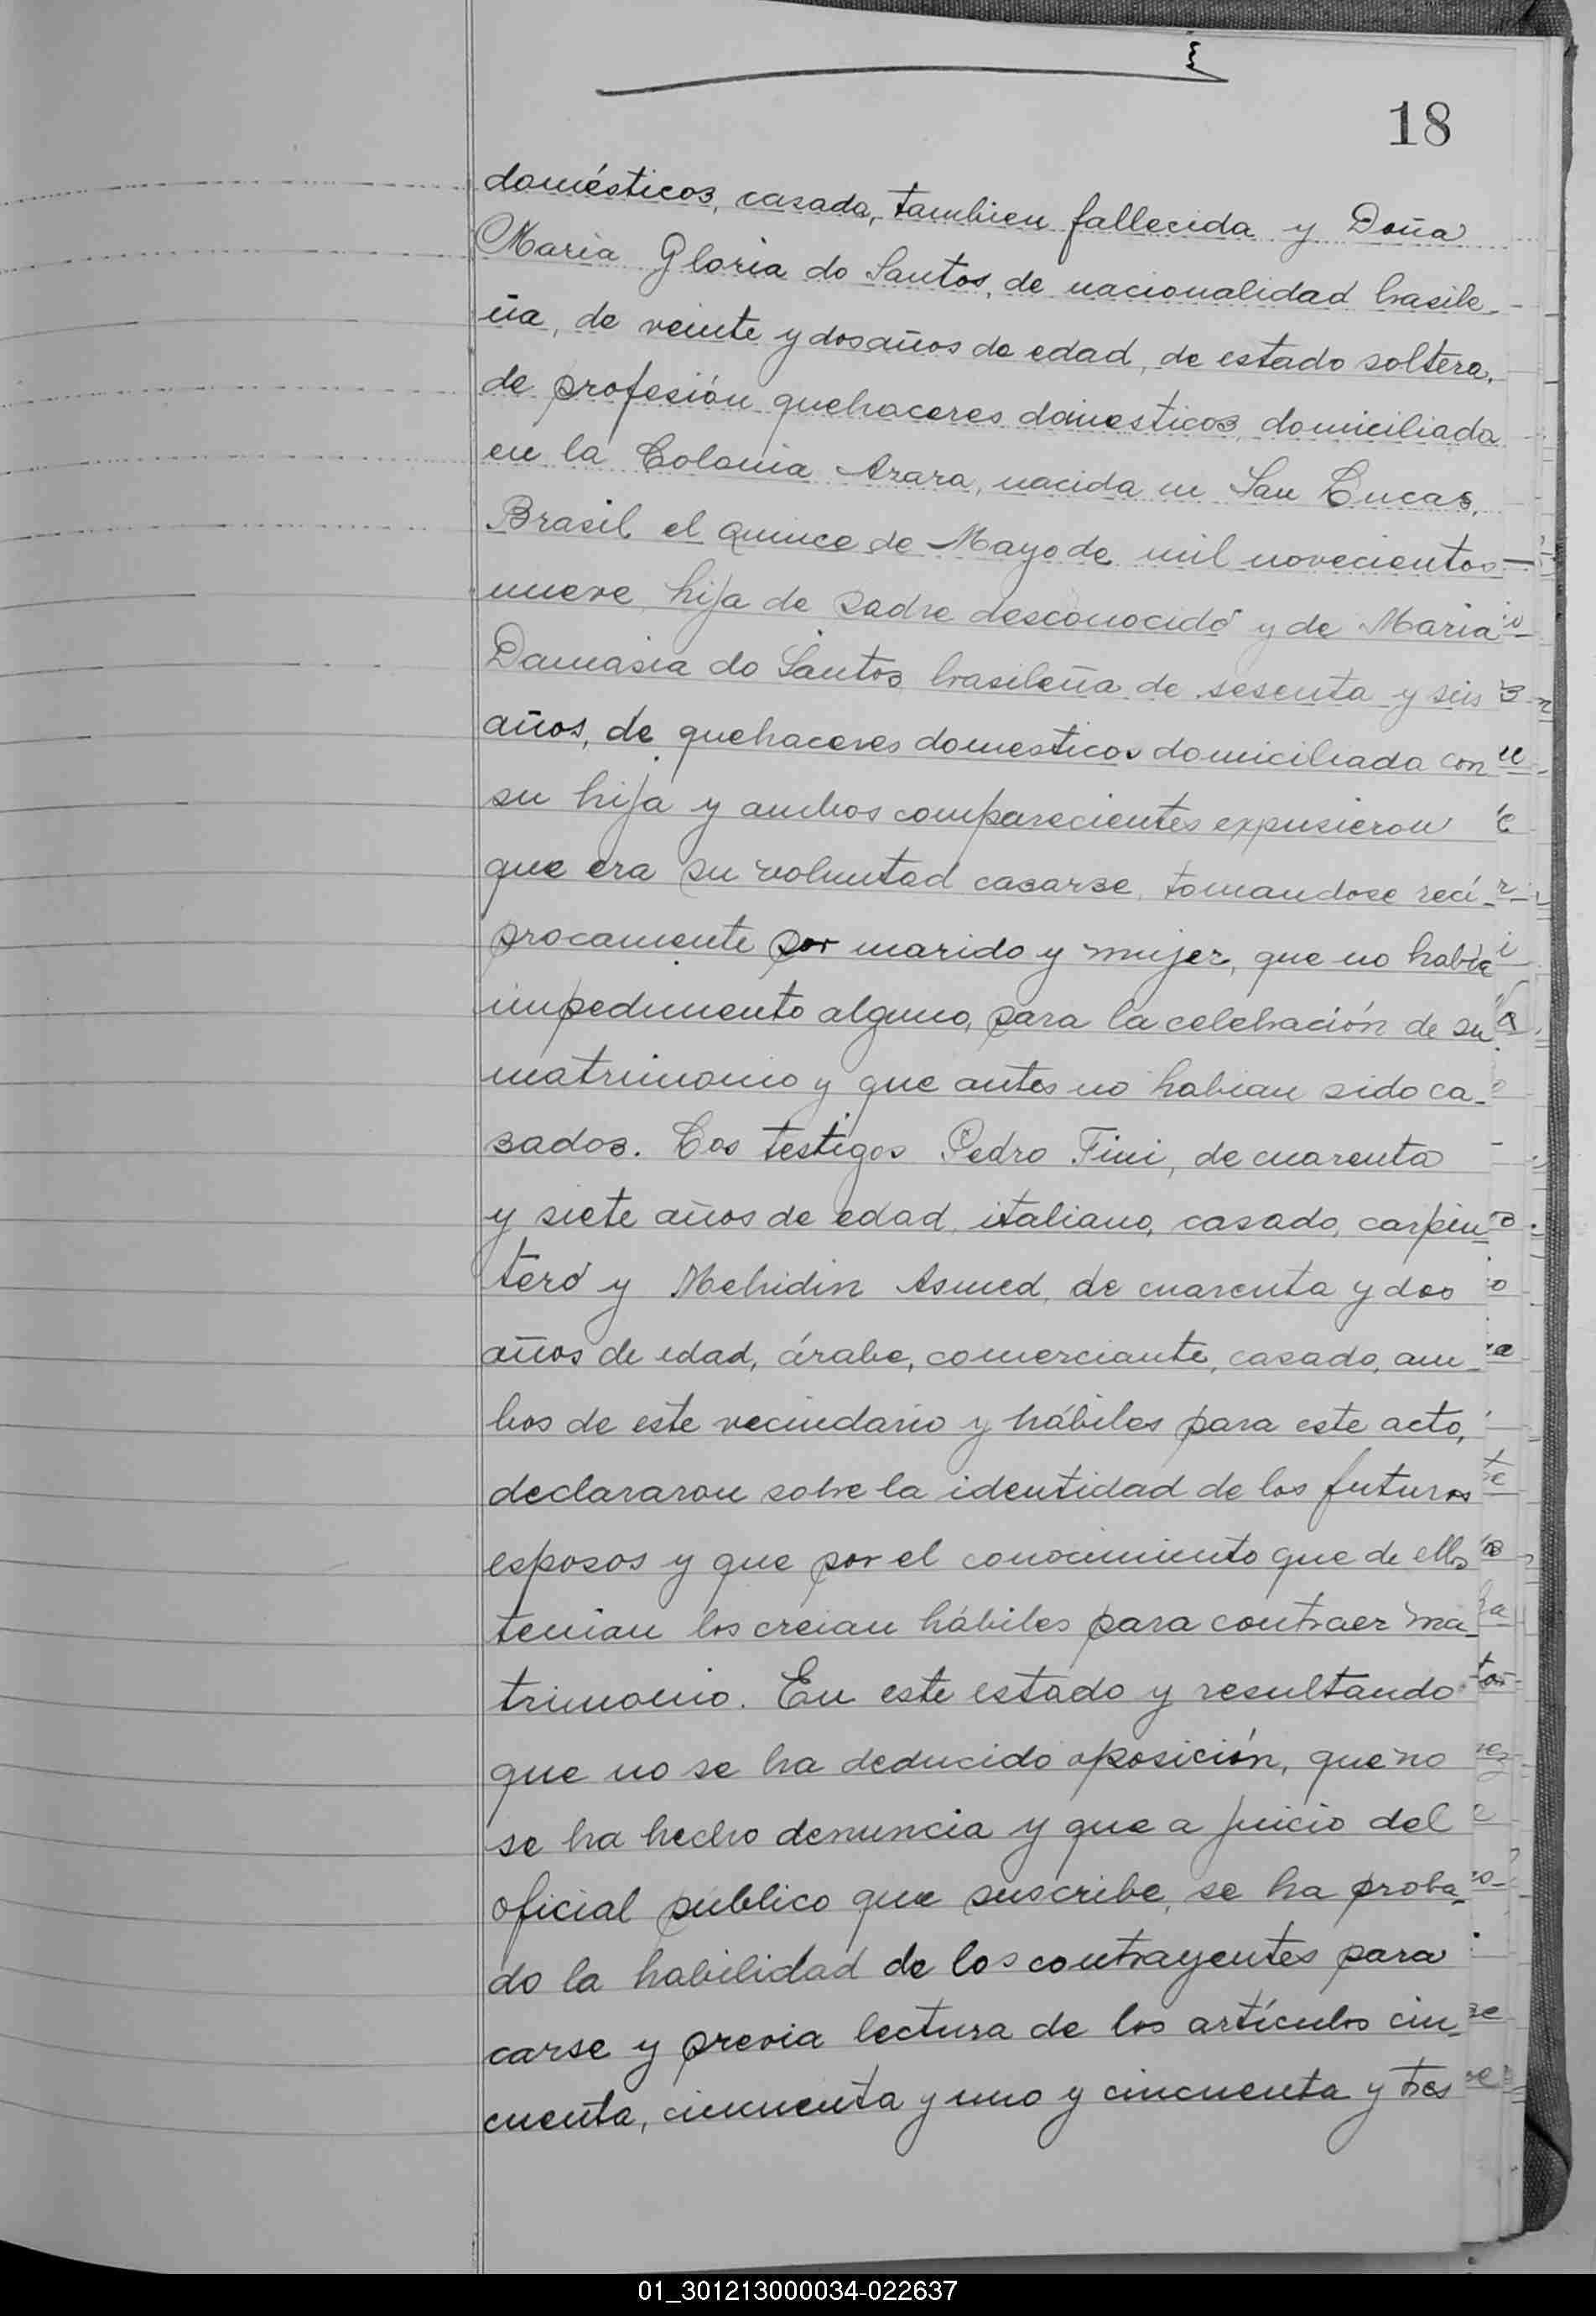 18
domésticos, casada, tambien fallecida y Doña
Maria Gloria do Santos, de nacionalidad brasile-
ña, de veinte y dos años de edad, de estado soltera,
de profesión quehaceres domesticos, domiciliada
en la Colonia Azara, nacida en San Lucas,
Brasil, el quince de Mayo de mil novecientos
nueve, hija de padre desconocido y de Maria
Damasia do Santos, brasileña de sesenta y seis
años, de quehaceres domesticos domiciliada con
su hija y ambos comparecientes expusieron
que era su voluntad casarse, tomandose recí-
procamente por marido y mujer, que no había
impedimento alguno, para la celebración de su
matrimonio y que antes no habian sido ca-
sados. Los testigos Pedro Fini, de cuarenta
y siete años de edad, italiano, casado, carpin-
tero y Mehidin Asmed, de cuarenta y dos
años de edad, árabe, comerciante, casado, am-
bos de este vecindario y hábiles para este acto,
declararon sobre la identidad de los futuros
esposos y que por el conocimiento que de ellos
tenian los creian hábiles para contraer ma-
trimonio. En este estado y resultando
que no se ha deducido oposición, que no
se ha hecho denuncia y que a juicio del
oficial público que suscribe, se ha proba-
do la habilidad de los contrayentes para
carse y previa lectura de los artículos cin-
cuenta, cincuenta y uno y cincuenta y tres
01_301213000034-022637